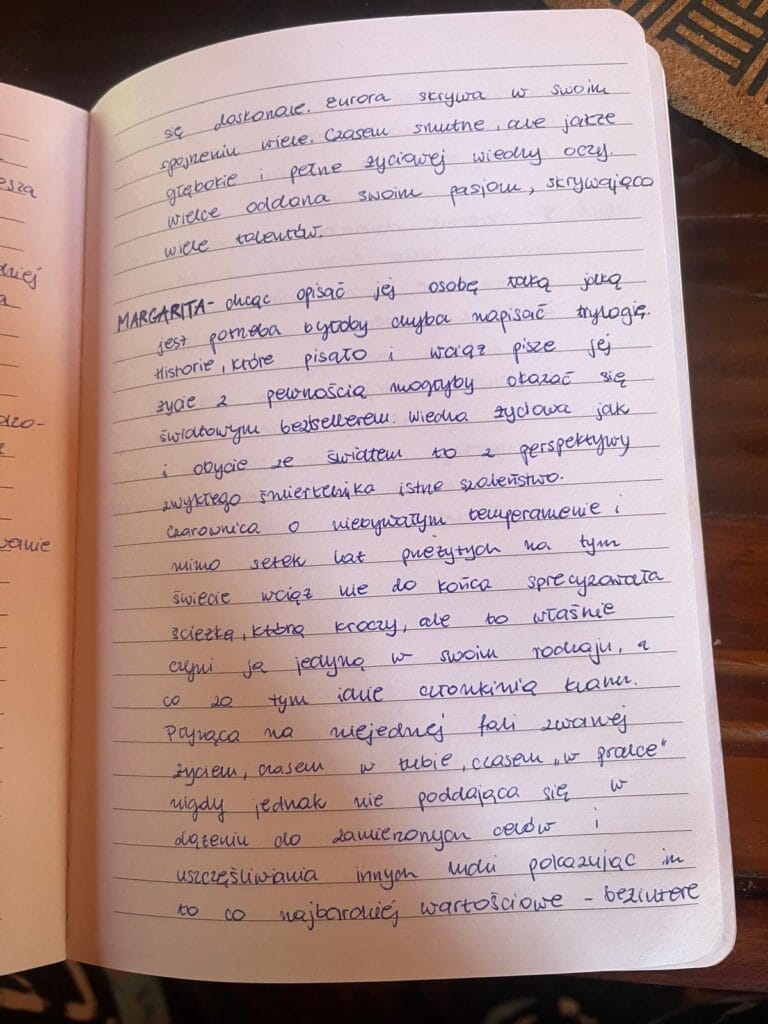 się doskonale. Eurora skrywa w swoim
spojrzeniu wiele. Czasem smutne, ale jakże
głębokie i pełne życiowej wiedzy oczy.
Wielce oddana swoim pasjom, skrywająca
wiele talentów.
MARGARITA - chcąc opisać jej osobę taką jaką
jest potrzeba byłoby chyba napisać trylogię.
Historie, które pisało i wciąż pisze jej
życie z pewnością mogłyby okazać się
światowym bestsellerem. Wiedza życiowa jak
i obycie ze światem to z perspektywy
zwykłego śmiertelnika istne szaleństwo.
Czarownica o niebywałym temperamenie i
mimo setek lat przeżytych na tym
świecie wciąż nie do końca sprecyzowała
ścieżkę, którą kroczy, ale to właśnie
czyni ją jedyną w swoim rodzaju, a
co za tym idzie członkinią klanu.
Płynąca na niejednej fali zwanej
życiem, czasem w tubie, czasem „w pralce"
nigdy jednak nie poddająca się w
dążeniu do zamierzonych celów i
uszczęśliwiania innych ludzi pokazując im
to co najbardziej wartościowe - beziutere
esza
dziej
a
dzo-
wanie